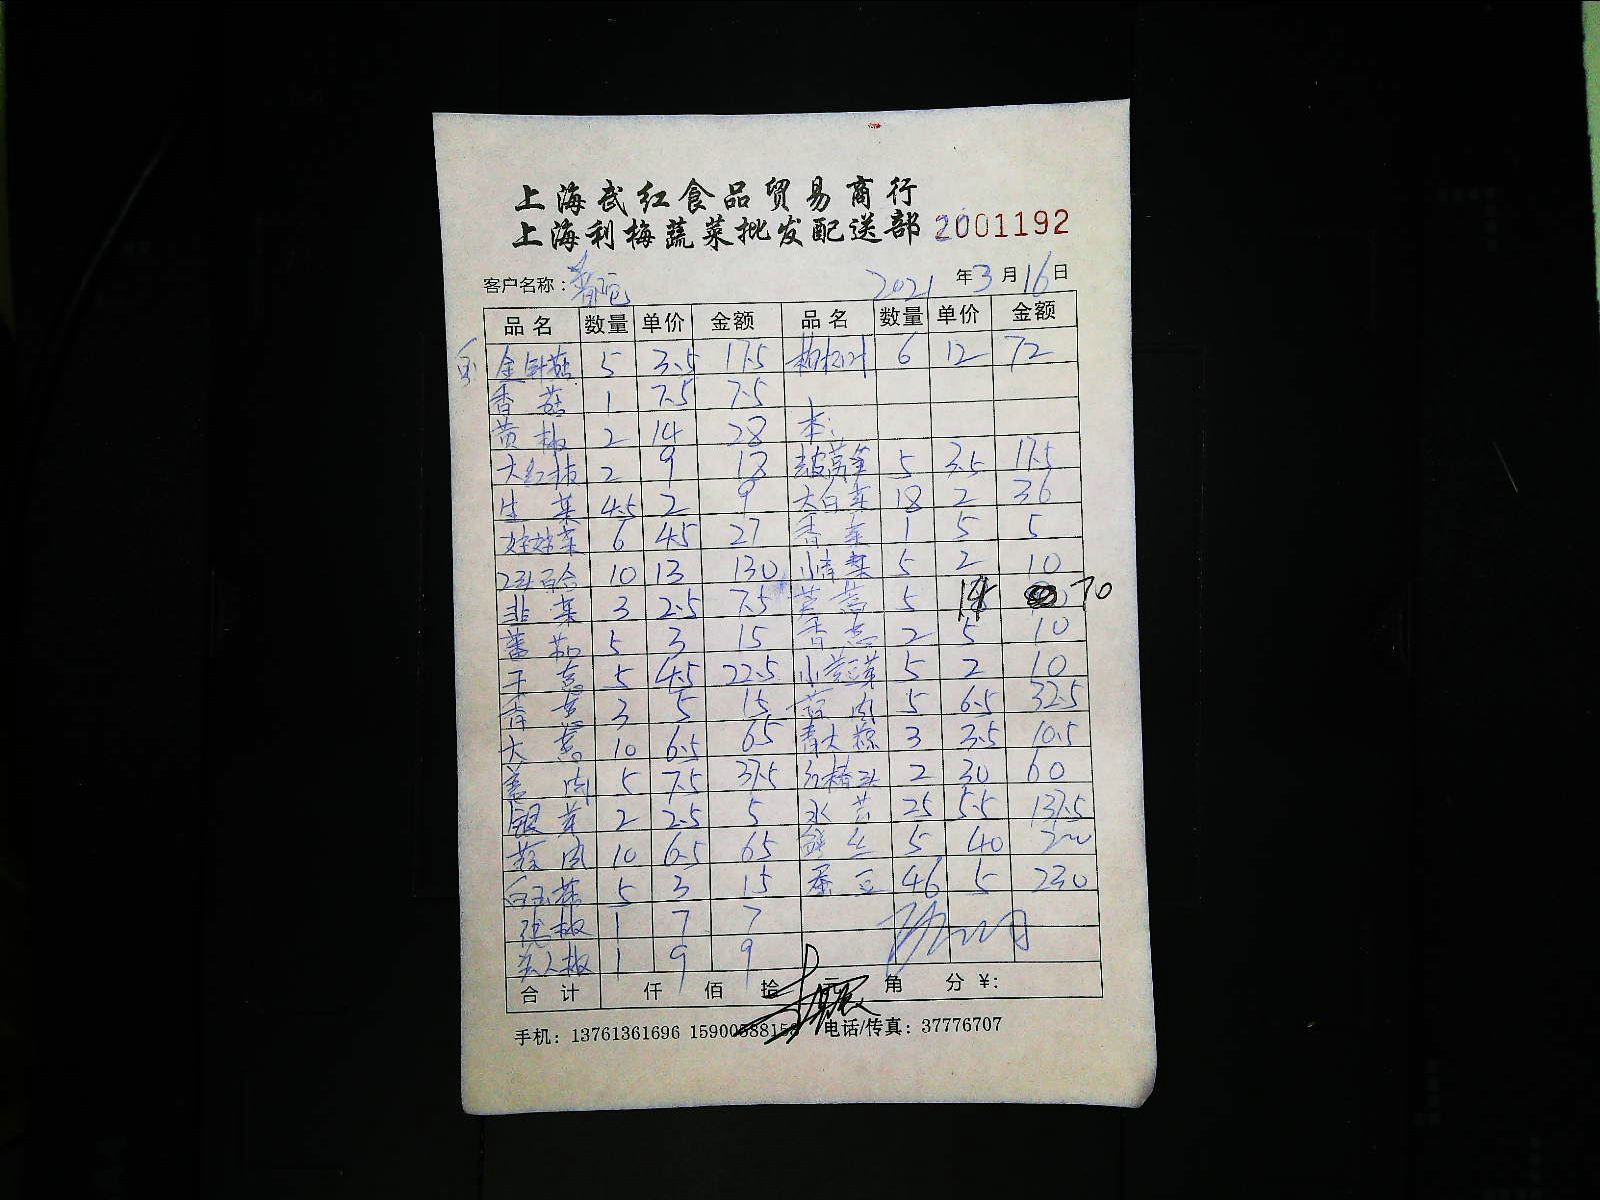 上海武红食品贸易商行
上海利梅蔬菜批发配送部 2001192
客户名称: 2021 年 3 月 16 日
品名 数量 单价 金额 品名 数量 单价 金额
金针菇 5 3.5 17.5 6 12 72
香菇 1 7.5 7.5
黄椒 2 14 28 本:
大红椒 2 9 18 去皮莴笋 5 3.5 17.5
生菜 4.5 2 9 大白菜 18 2 36
娃娃菜 6 4.5 27 香菜 1 5 5
2头百合 10 13 130 小青菜 5 2 10
韭菜 3 2.5 7.5 5 14 70
蕃茄 5 3 15 香葱 2 5 10
干葱 5 4.5 22.5 小黄豆芽 5 2 10
3 5 15 肉 5 6.5 32.5
大葱 10 6.5 65 青大椒 3 3.5 10.5
姜肉 5 7.5 37.5 2 30 60
银芽 2 2.5 5 水芹 25 5.5 137.5
蒜肉 10 6.5 65 5 40 200
白玉菇 5 3 15 蚕豆 46 5 230
椒 1 7 7
美人椒 1 9 9
合计 仟 佰 拾 元 角 分 ¥:
手机: 13761361696 电话/传真: 37776707